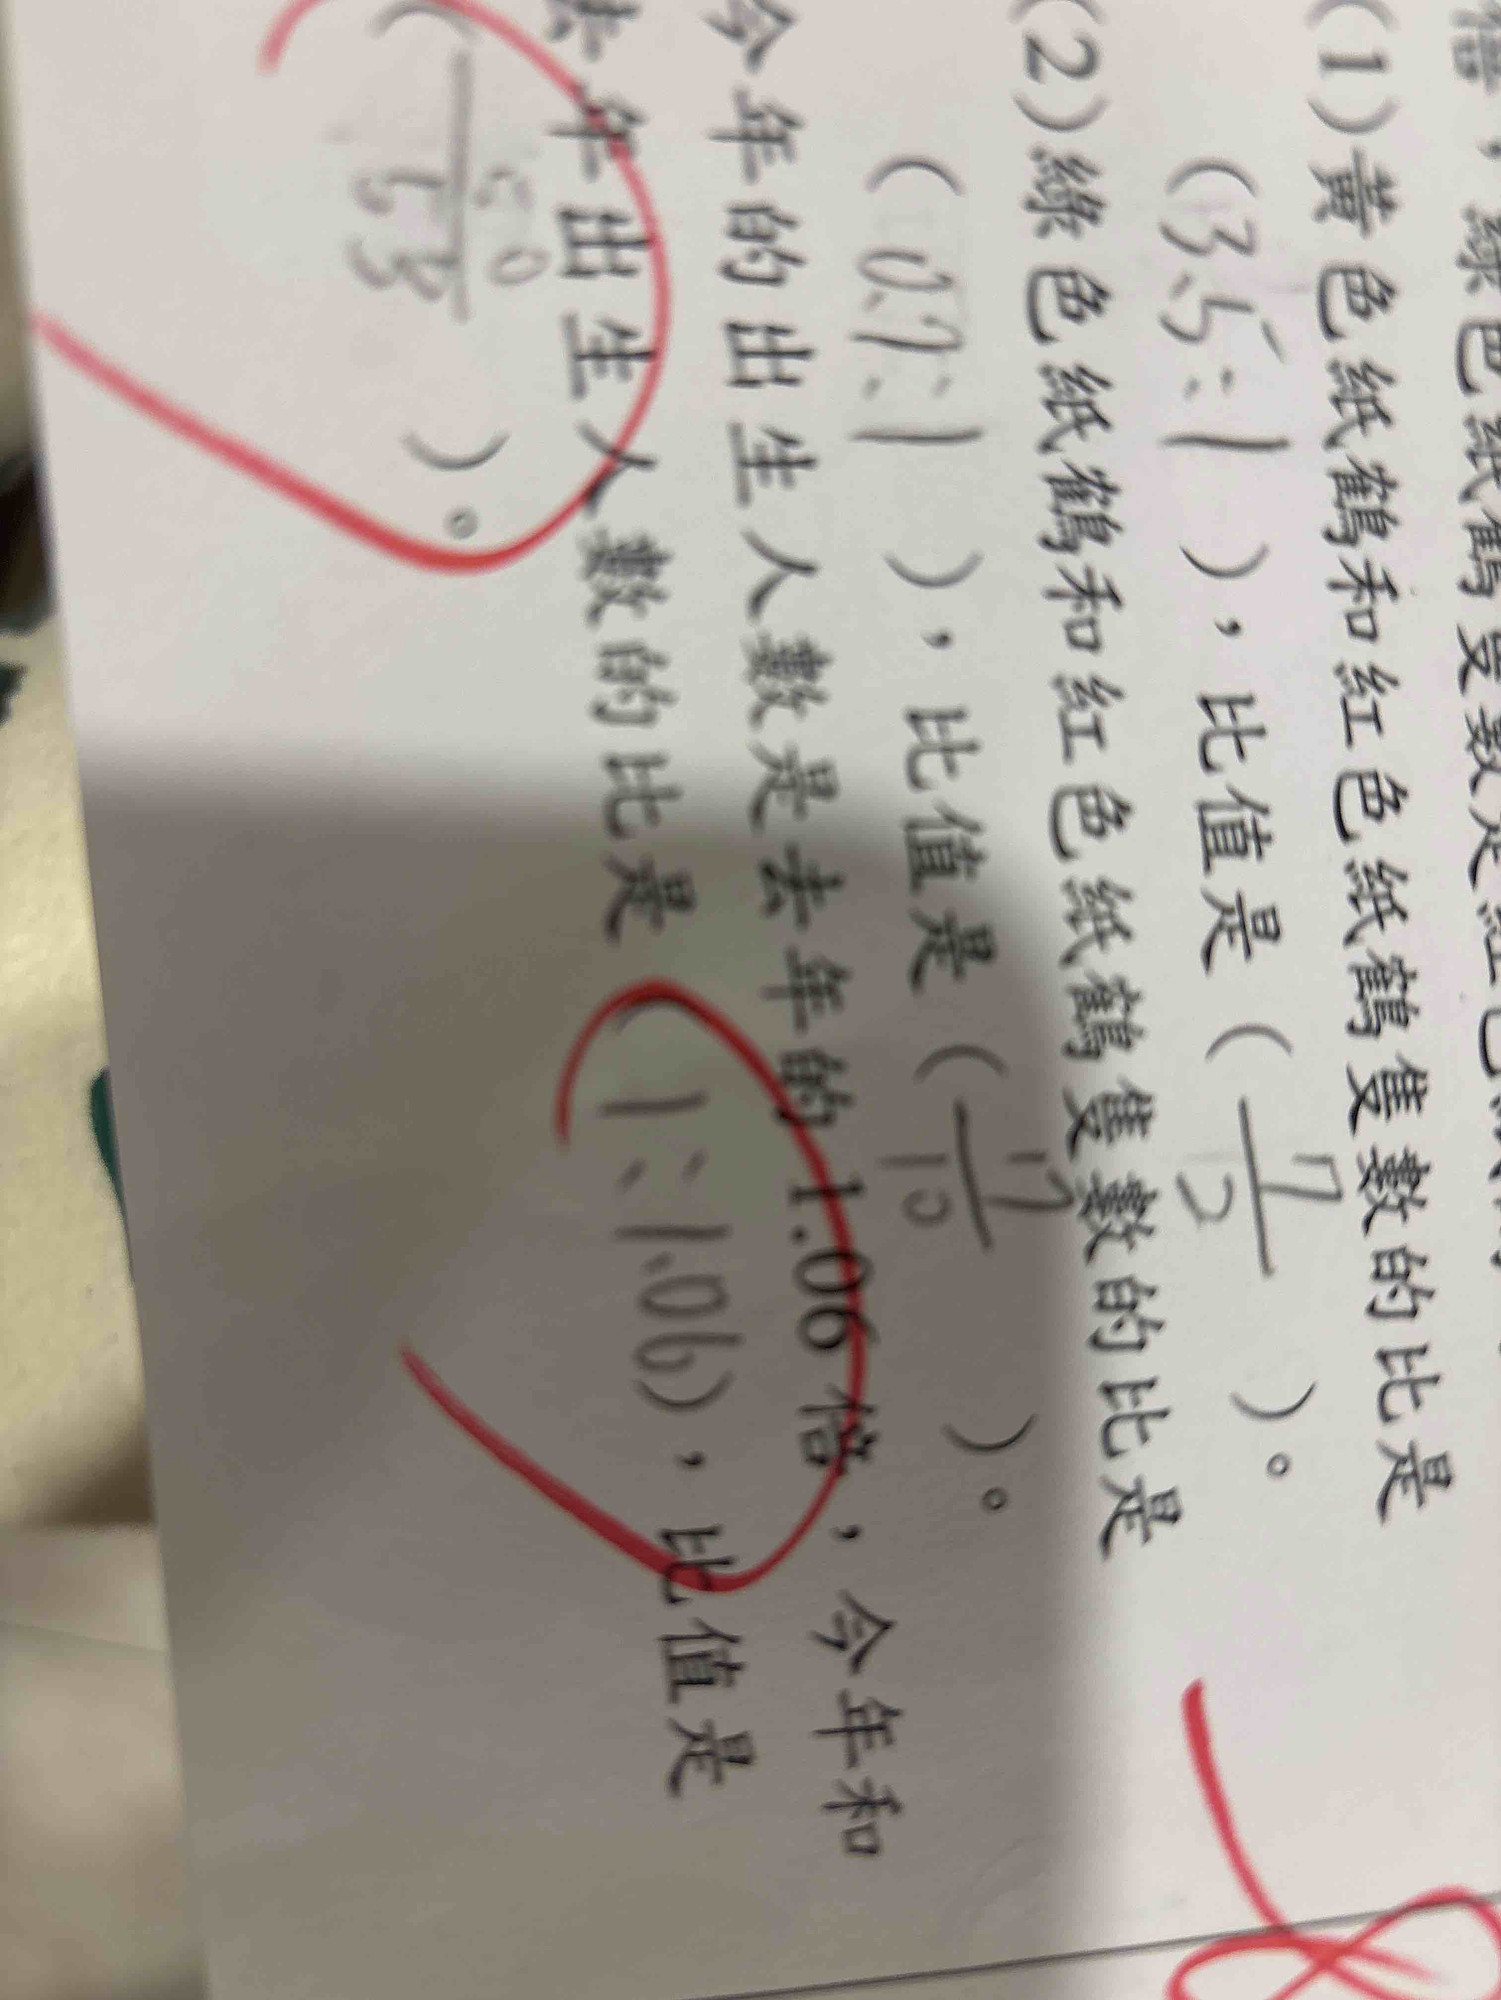 綠色紙鶴隻數是紅色
(1)黃色紙鶴和紅色紙鶴隻數的比是
(3.5:1),比值是(7/2)。
(2)綠色紙鶴和紅色紙鶴隻數的比是
(0.7:1),比值是(7/10)。
今年的出生人數是去年的1.06倍,今年和
去年出生人數的比是(1:1.06),比值是
(50/53)。